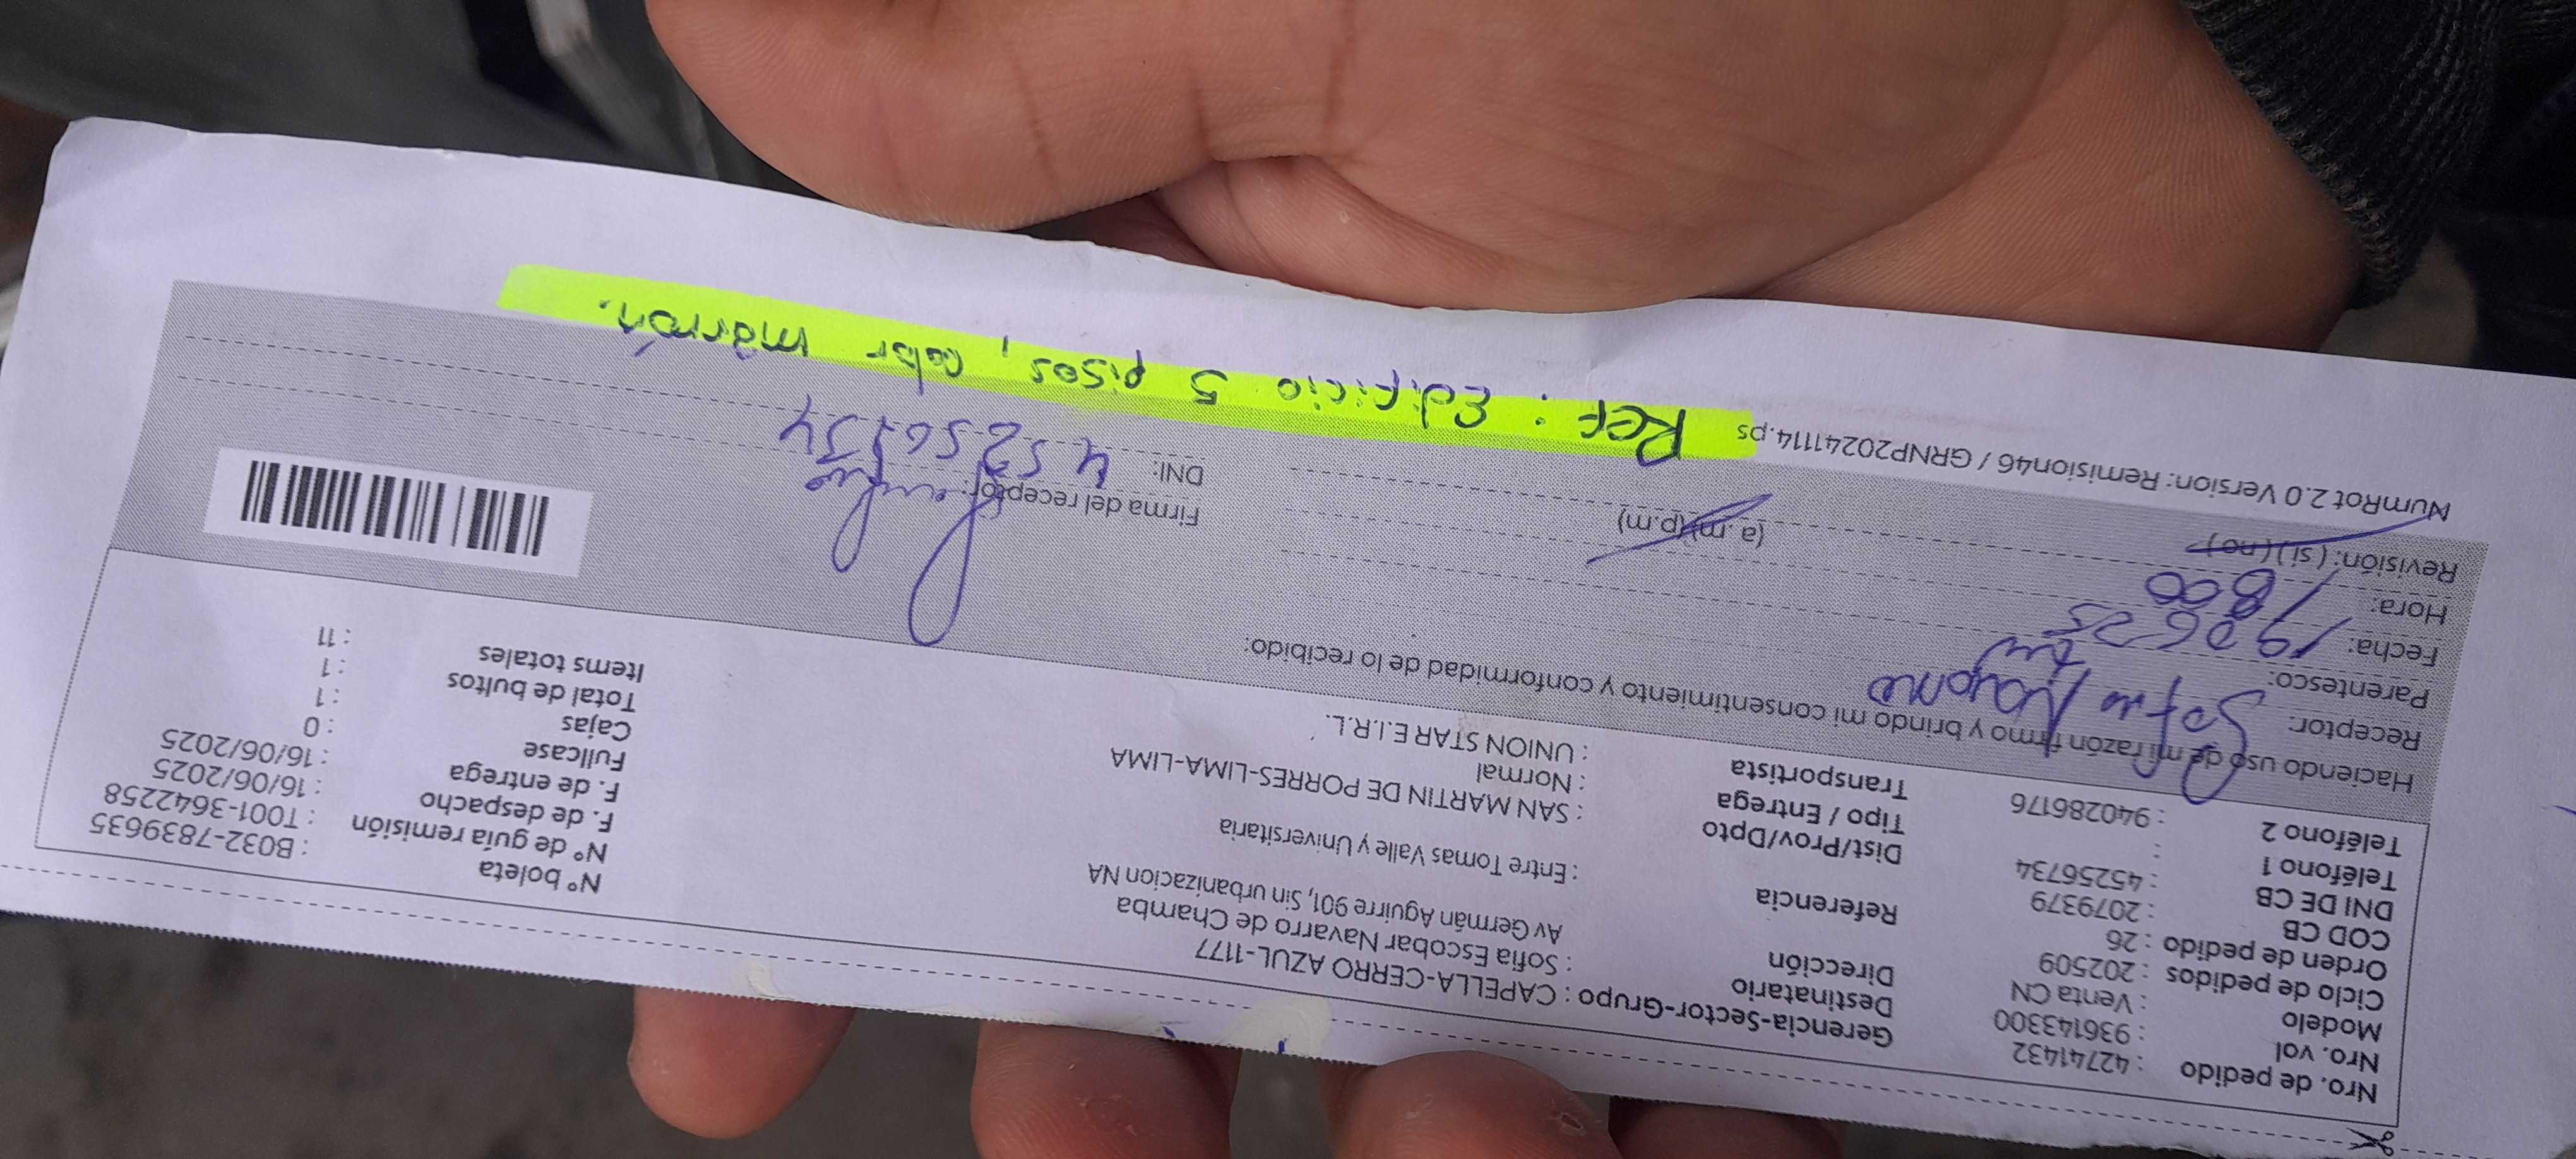 Nro. de pedido : 42741432
Nro. vol : 936143300
Modelo : Venta CN
Ciclo de pedidos : 202509
Orden de pedido : 26
COD CB : 2079379
DNI DE CB : 45256734
Teléfono 1 :
Teléfono 2 : 940286176
Gerencia-Sector-Grupo : CAPELLA-CERRO AZUL-1177
Destinatario : Sofia Escobar Navarro de Chamba
Dirección Av Germán Aguirre 901, Sin urbanizacion NA
Referencia : Entre Tomas Valle y Universitaria
Dist/Prov/Dpto : SAN MARTIN DE PORRES-LIMA-LIMA
Tipo / Entrega : Normal
Transportista : UNION STAR E.I.R.L.
N° boleta : B032-7839635
N° de guía remisión : T001-3642258
F. de despacho : 16/06/2025
F. de entrega : 16/06/2025
Fullcase : 0
Cajas : 1
Total de bultos : 1
Items totales : 11
Haciendo uso de mi razón firmo y brindo mi consentimiento y conformidad de lo recibido:
Receptor:
Parentesco:
Fecha: 19 06 25
Hora: 1800
Revisión: ( si ) ( no )
(a.m)(p.m)
Firma del receptor:
DNI: 45256734
NumRot 2.0 Version: Remision46 / GRNP20241114.ps
Ref : Edificio 5 pisos, color marrón.